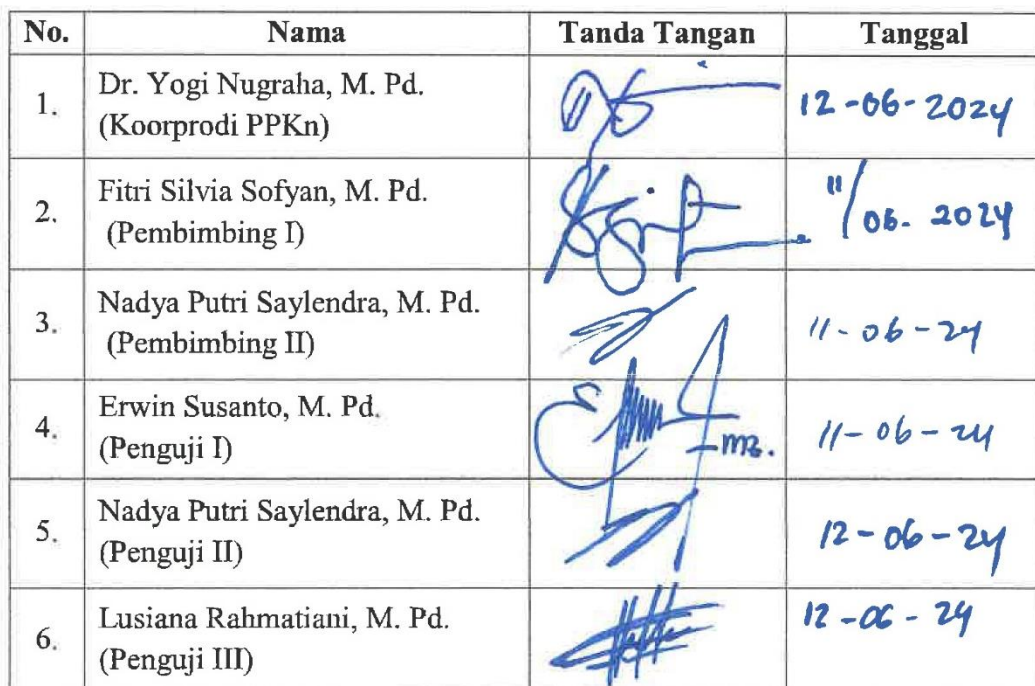 No. Nama Tanda Tangan Tanggal
1. Dr. Yogi Nugraha, M. Pd.
(Koorprodi PPKn)
12-06-2024
2. Fitri Silvia Sofyan, M. Pd.
(Pembimbing I)
11/06. 2024
3. Nadya Putri Saylendra, M. Pd.
(Pembimbing II)
11-06-24
4. Erwin Susanto, M. Pd.
(Penguji I)
11-06-24
5. Nadya Putri Saylendra, M. Pd.
(Penguji II)
12-06-24
6. Lusiana Rahmatiani, M. Pd.
(Penguji III)
12-06-24